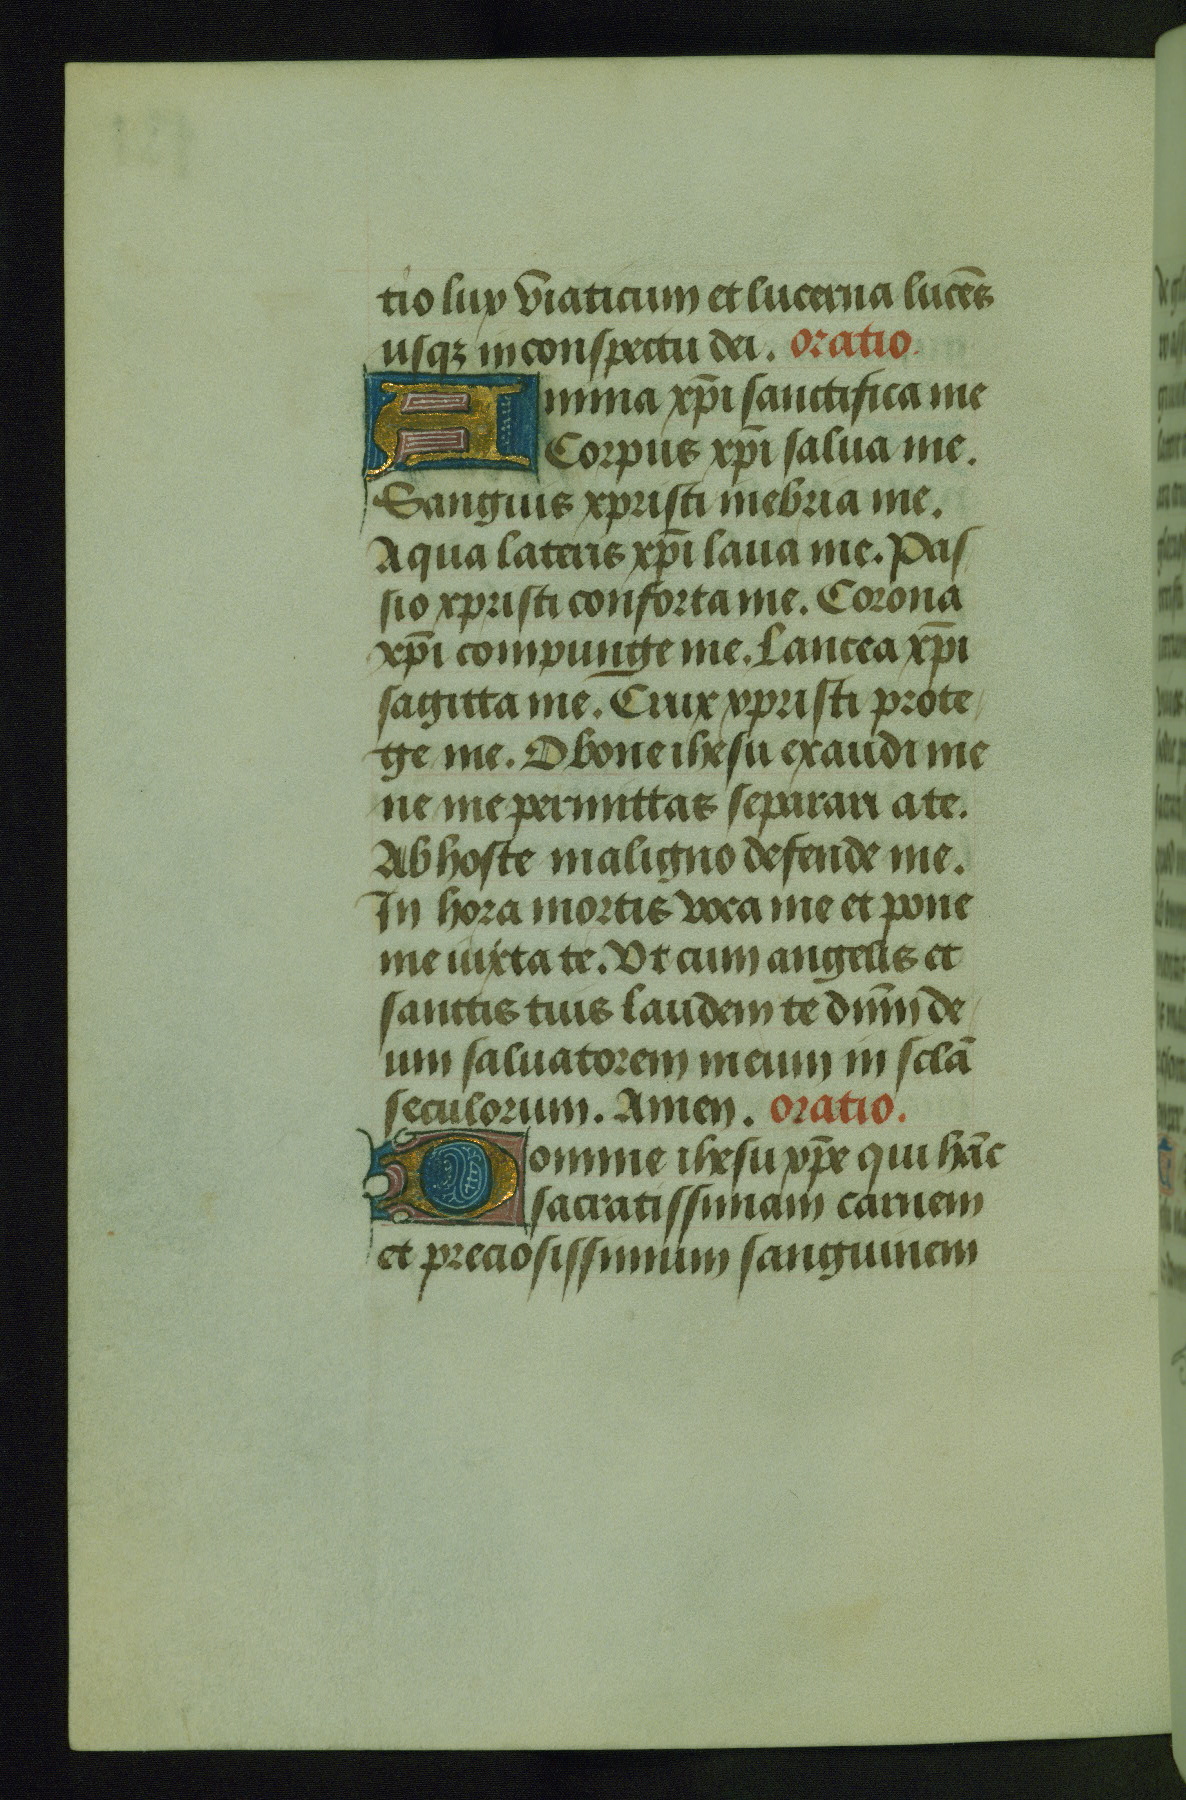 tio lux v̄iaticum et lucerna lucēs
usqꝫ in conspectu dei. oratio.
Anima xp̄i sanctifica me
Corpus xp̄i salua me.
Sanguis xpristi inebria me.
Aqua lateris xp̄i laua me. Pas
sio xpristi conforta me. Corona
xp̄i compunge me. Lancea xp̄i
sagitta me. Crux xpristi prote
ge me. O bone ihesu exaudi me
ne me permittas separari a te.
Ab hoste maligno defende me.
In hora mortis voca me et pone
me iuxta te. Vt cum angelis et
sanctis tuis laudem te dn̄m de
um saluatorem meum in sclā
seculorum. Amen. oratio.
Domine ihesu xp̄e qui hāc
sacratissimam carnem
et preciosissimum sanguinem